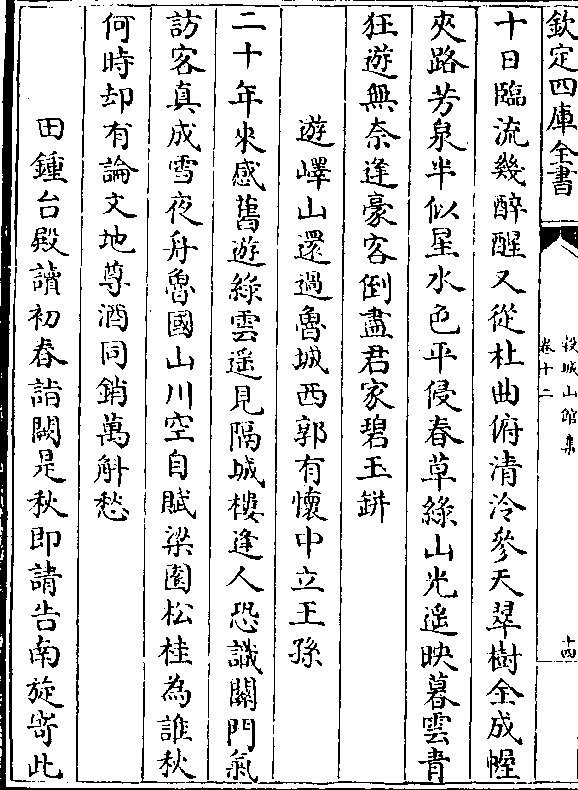 欽定四庫全書
穀城山館集
卷十二
十四
十日臨流幾醉醒又從杜曲俯清泠參天翠樹全成幄
夾路芳泉半似星水色平侵春草綠山光遥映暮雲青
狂遊無奈逢豪客倒盡君家碧玉缾
遊嶧山還過魯城西郭有懷中立王孫
二十年來感舊遊綠雲遥見隔城樓逢人恐識關門氣
訪客真成雪夜舟魯國山川空自賦梁園松桂為誰秋
何時却有論文地尊酒同銷萬斛愁
田鍾台殿讀初春詣闕是秋即請告南旋寄此